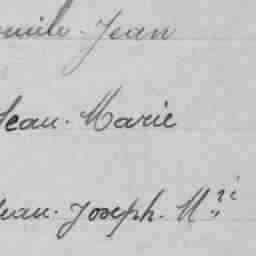 Emile. Jean
Jean. Marie
Jean. Joseph. M^rie